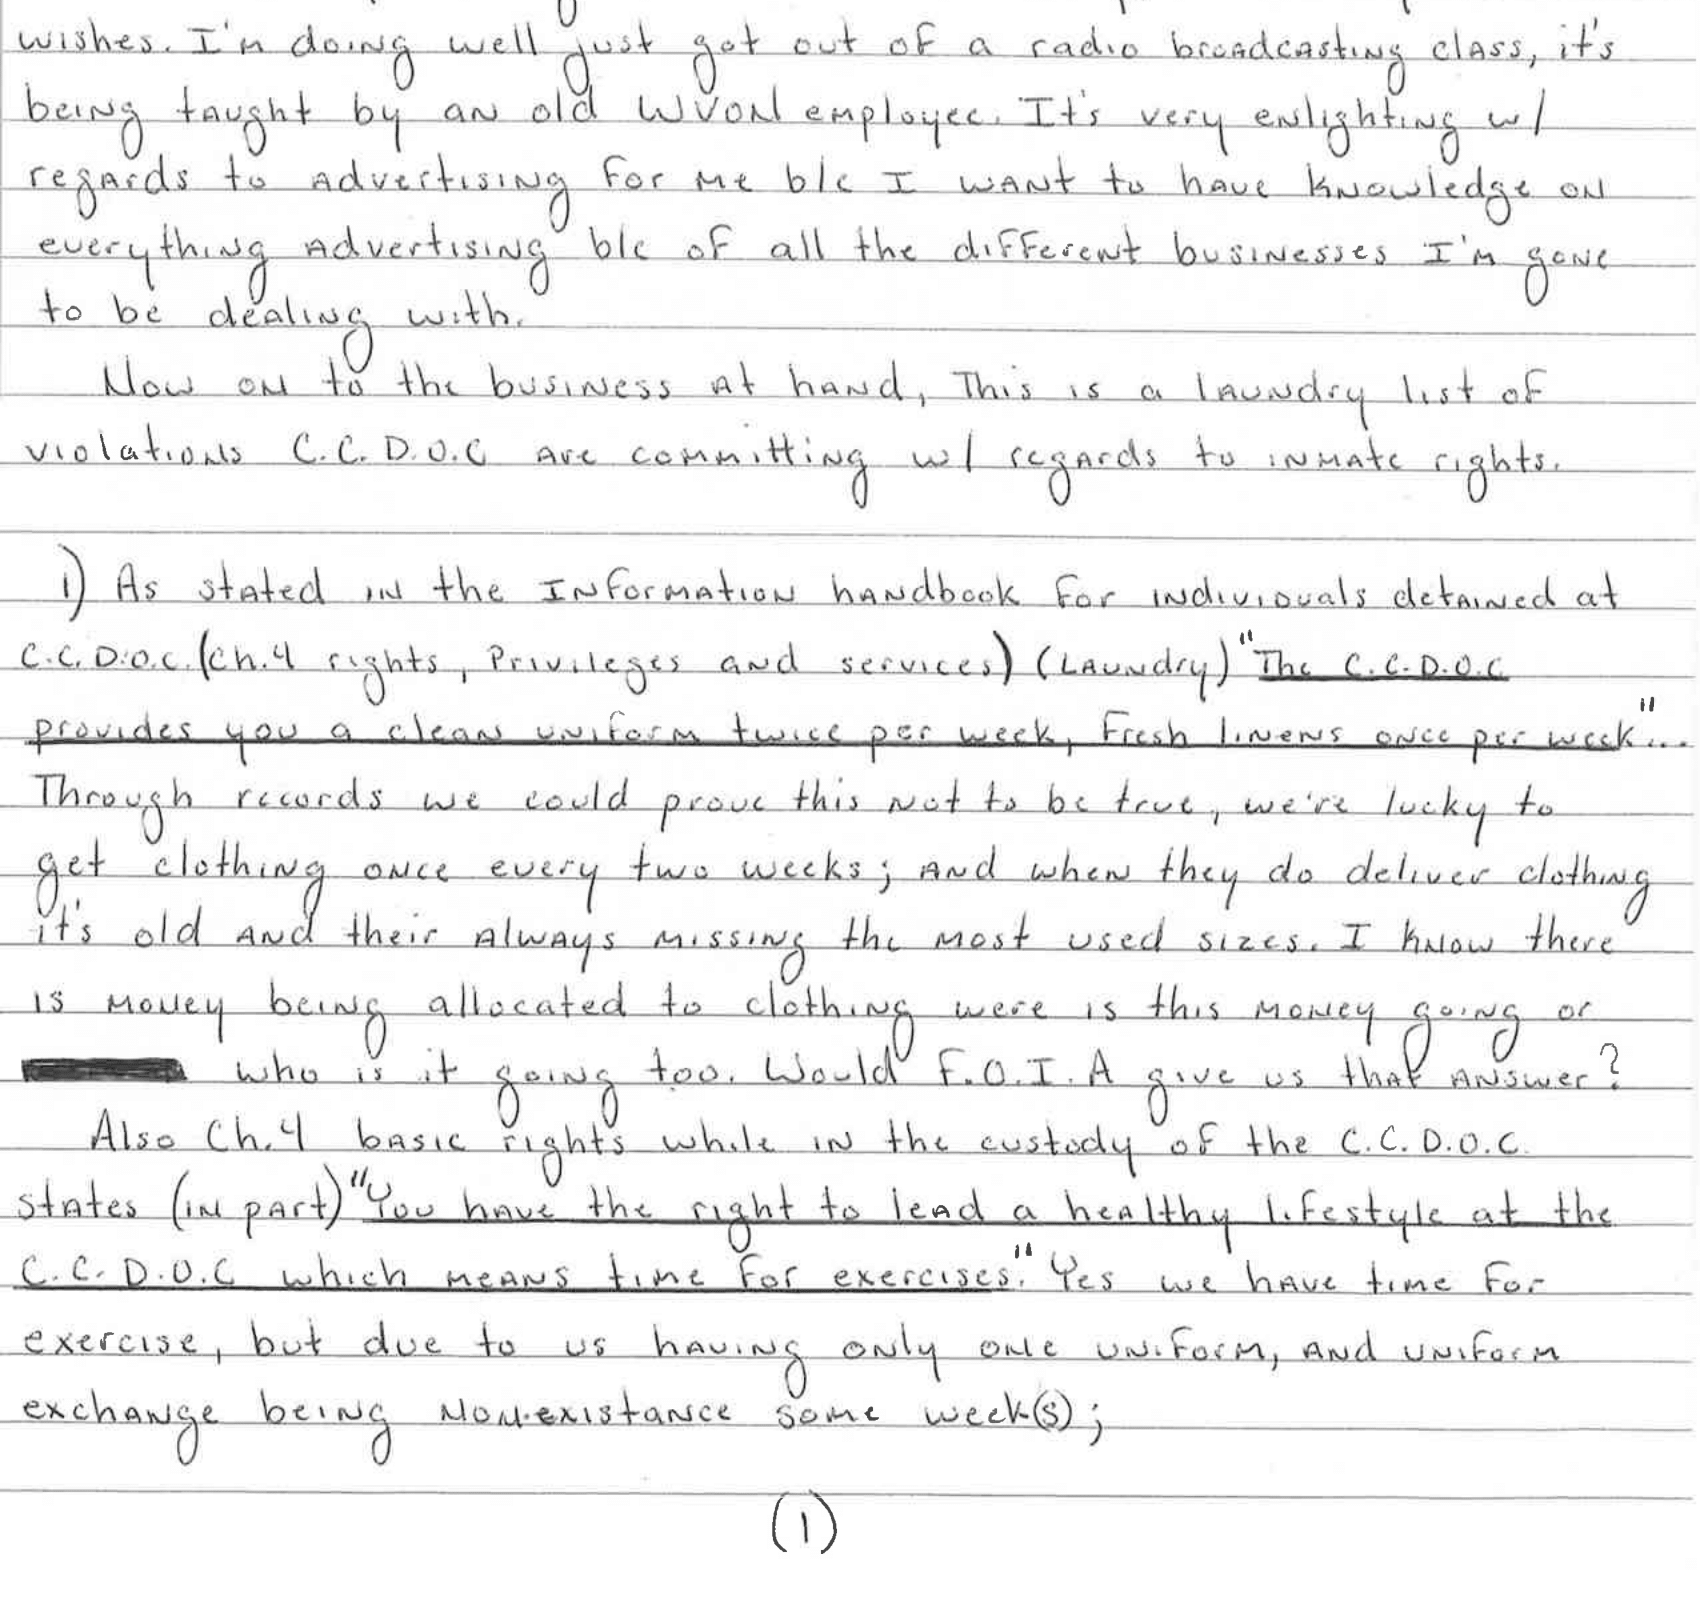 wishes. I'm doing well just got out of a radio broadcasting class, it's
being taught by an old WVON employee. It's very enlighting w/
regards to advertising for me b/c I want to have knowledge on
everything advertising b/c of all the different businesses I'm gone
to be dealing with.
Now on to the business at hand, This is a laundry list of
violations C.C.D.O.C are committing w/ regards to inmate rights.
1) As stated in the Information handbook for individuals detained at
C.C.D.O.C. (Ch.4 rights, Privileges and services) (Laundry) "The C.C.D.O.C
provides you a clean uniform twice per week, Fresh linens once per week"...
Through records we could prove this not to be true, we're lucky to
get clothing once every two weeks; and when they do deliver clothing
it's old and their always missing the most used sizes. I know there
is money being allocated to clothing were is this money going or
who is it going too. Would F.O.I.A give us that answer?
Also Ch.4 basic rights while in the custody of the C.C.D.O.C.
states (in part) "You have the right to lead a healthy lifestyle at the
C.C.D.O.C which means time for exercises." Yes we have time for
exercise, but due to us having only one uniform, and uniform
exchange being non-existance some week(s);
(1)